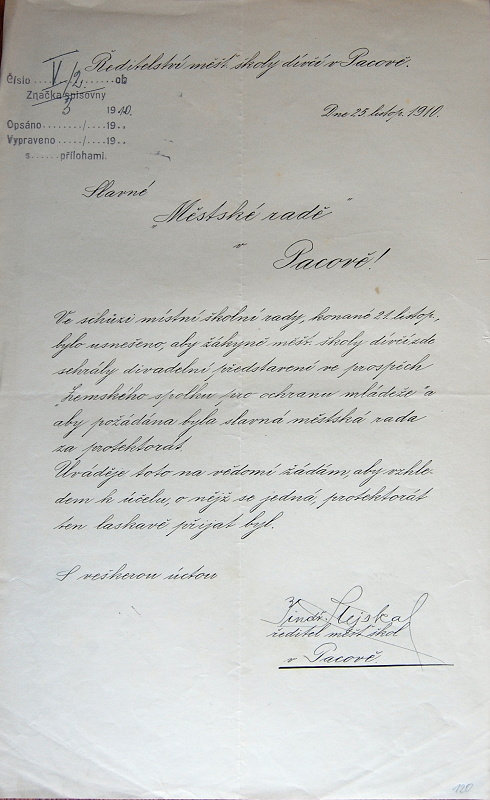 Ředitelství měšť. školy dívčí v Pacově.
Číslo V/2 ob
Značka spisovny
3 1910.
Opsáno......../....19..
Vypraveno....../....19..
s...... přílohami.
Dne 23. listop. 1910.
Slavné
„Městské radě“
v
Pacově!
Ve schůzi místní školní rady, konané 21. listop.,
bylo usneseno, aby žákyně měšť. školy dívčí zde
sehrály divadelní představení ve prospěch
„Zemského spolku pro ochranu mládeže“ a
aby požádána byla slavná městská rada
za protektorát.
Uváděje toto na vědomí žádám, aby vzhle-
dem k účelu, o nějž se jedná, protektorát
ten laskavě přijat byl.
S veškerou úctou
Jindř. Stejskal
ředitel měšť. škol
v Pacově.
120